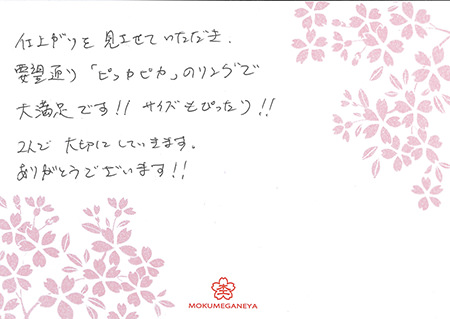 仕上がりを見せていただき.
要望通り「ピッカピカ」のリングで
大満足です!! サイズもぴったり!!
2人で大切にしていきます.
ありがとうございます!!
MOKUMEGANEYA